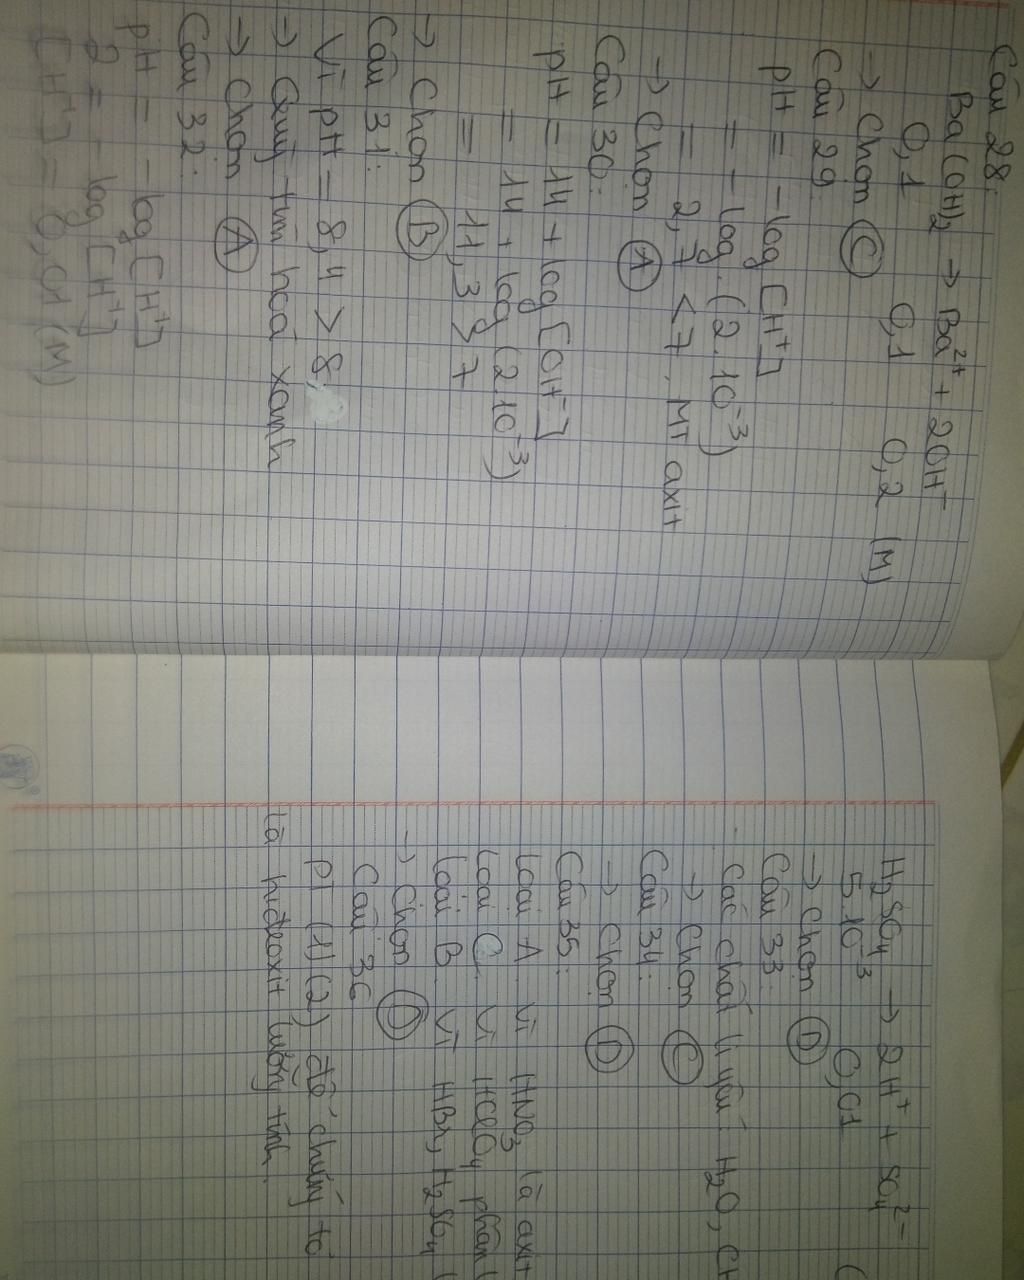 Câu 28:
Ba(OH)₂ → Ba²⁺ + 2OH⁻
0,1 0,1 0,2 (M)
→ Chọn C
Câu 29:
pH = -log [H⁺]
= -log (2.10⁻³)
= 2,7 < 7. MT axit
→ Chọn A
Câu 30:
pH = 14 + log [OH⁻]
= 14 + log (2.10⁻³)
= 11,3 > 7
→ Chọn B
Câu 31:
Vì pH = 8,4 > 8
→ Quỳ tím hoá xanh
→ Chọn A
Câu 32:
pH = -log [H⁺]
2 = -log [H⁺]
[H⁺] = 0,01 (M)
H₂SO₄ → 2H⁺ + SO₄²⁻
5.10⁻³ 0,01
→ Chọn D
Câu 33:
Các chất li yếu: H₂O, CH
→ Chọn C
Câu 34:
→ Chọn D
Câu 35:
Loại A. Vì HNO₃ là axit
Loại C. Vì HClO₄ phân l
Loại B. Vì HBr, H₂SO₄
→ Chọn D
Câu 36
PT (1) (2) để chứng tỏ
là hiđroxit lưỡng tính.